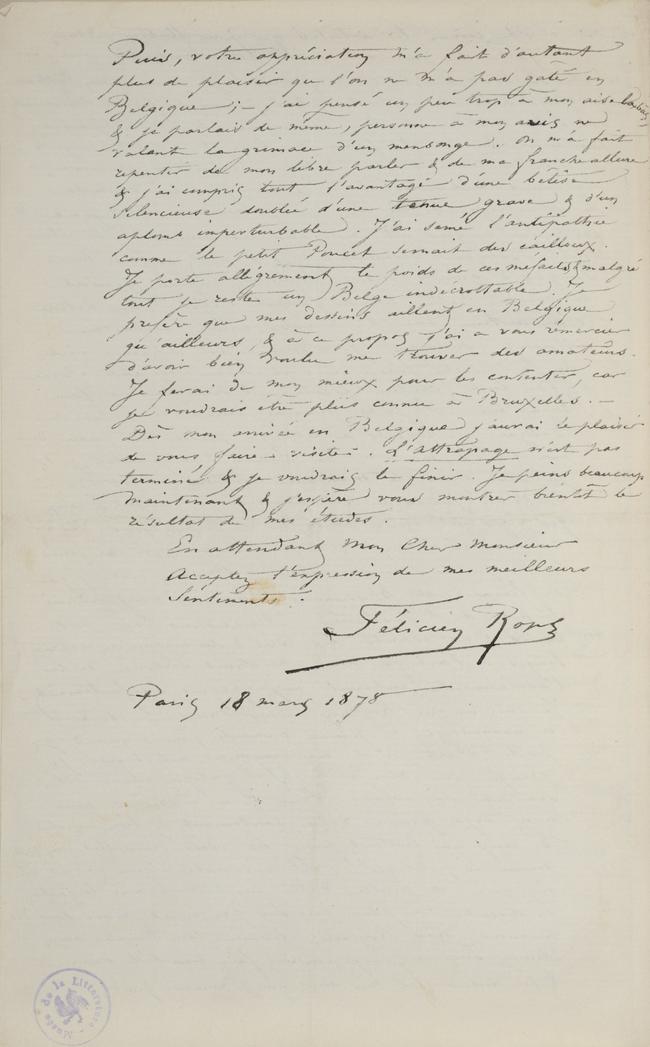 Puis, votre appréciation m'a fait d'autant
plus de plaisir que l'on ne m'a pas gaté en
Belgique ; – j'ai pensé un peu trop à mon aise là-bas,
& je parlais de même, personne à mon avis ne
valant la grimace d'un mensonge. On m'a fait
repentir de mon libre parler & de ma franche allure
& j'ai compris tout l'avantage d'une bêtise
silencieuse doublée d'une tenue grave & d'un
aplomb imperturbable. J'ai semé l'antipathie
comme le petit Poucet semait des cailloux.
Je porte allégrement le poids de ces méfaits & malgré
tout je reste un Belge indécrottable. Je
préfère que mes dessins aillent en Belgique
qu'ailleurs, & à ce propos j'ai a vous remercier
d'avoir bien voulu me trouver des amateurs.
Je ferai de mon mieux pour les contenter, car
je voudrais être plus connu à Bruxelles. –
Dès mon arrivée en Belgique j'aurai le plaisir
de vous faire visite. L'attrapage n'est pas
terminé & je voudrais le finir. Je peins beaucoup
maintenant & j'espère vous montrer bientôt le
résultat de mes études.
En attendant Mon Cher Monsieur
Acceptez l'expression de mes meilleurs
Sentiments.
Félicien Rops
Paris 18 mars 1878
Musée de la Littérature